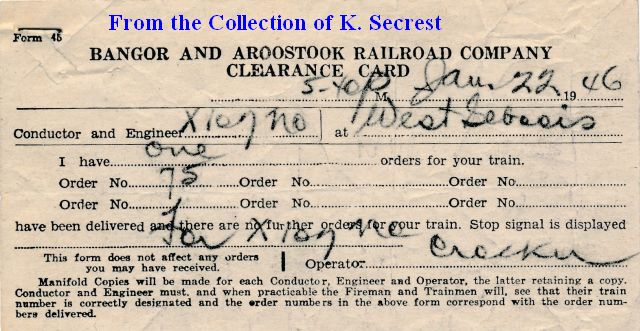 From the Collection of K. Secrest
Form 45
BANGOR AND AROOSTOOK RAILROAD COMPANY
CLEARANCE CARD
5-40P M Jan. 22 1946
Conductor and Engineer X109 No at West Seboois
I have one orders for your train.
Order No. 75 Order No. Order No.
Order No. Order No. Order No.
have been delivered and there are no further orders for your train. Stop signal is displayed
For X109 No
This form does not affect any orders
you may have received.
Operator Crocker
Manifold Copies will be made for each Conductor, Engineer and Operator, the latter retaining a copy.
Conductor and Engineer must, and when practicable the Fireman and Trainmen will, see that their train
number is correctly designated and the order numbers in the above form correspond with the order num-
bers delivered.